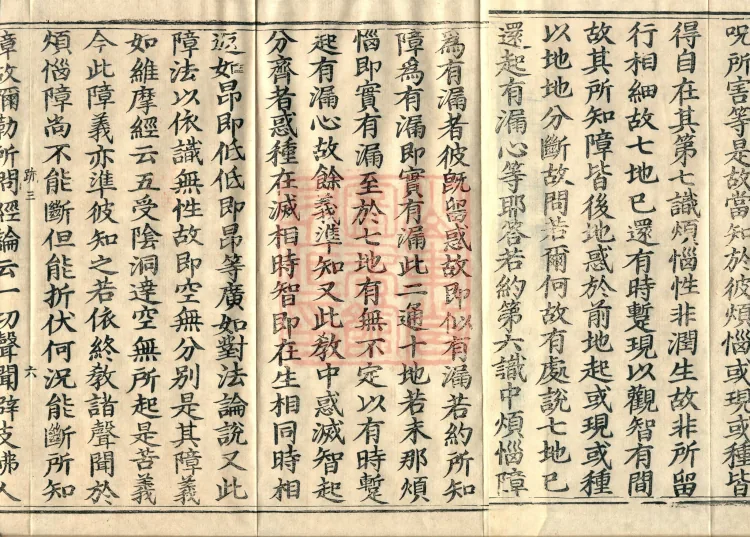 呪所害等是故當知於彼煩惱或現或種皆
得自在其第七識煩惱性非潤生故非所留
行相細故七地已還有時蹔現以觀智有間
故其所知障皆後地惑於前地起或現或種
以地地分斷故問若爾何故有處說七地已
還起有漏心等耶荅若約第六識中煩惱障
爲有漏者彼旣留惑故即似有漏若約所知
障爲有漏即實有漏此二通十地若末那煩
惱即實有漏至於七地有無不定以有時蹔
起有漏心故餘義準知又此敎中惑滅智起
分齊者惑種在滅相時智即在生相同時相
返如昂即低低即昂等廣如對法論說又此
障法以依識無性故即空無分别是其障義
如維摩經云五受陰洞達空無所起是苦義
今此障義亦準彼知之若依終敎諸聲聞於
煩惱障尚不能斷但能折伏何況能斷所知
疏三 六
障故彌勒所問經論云一切聲聞辟支佛人